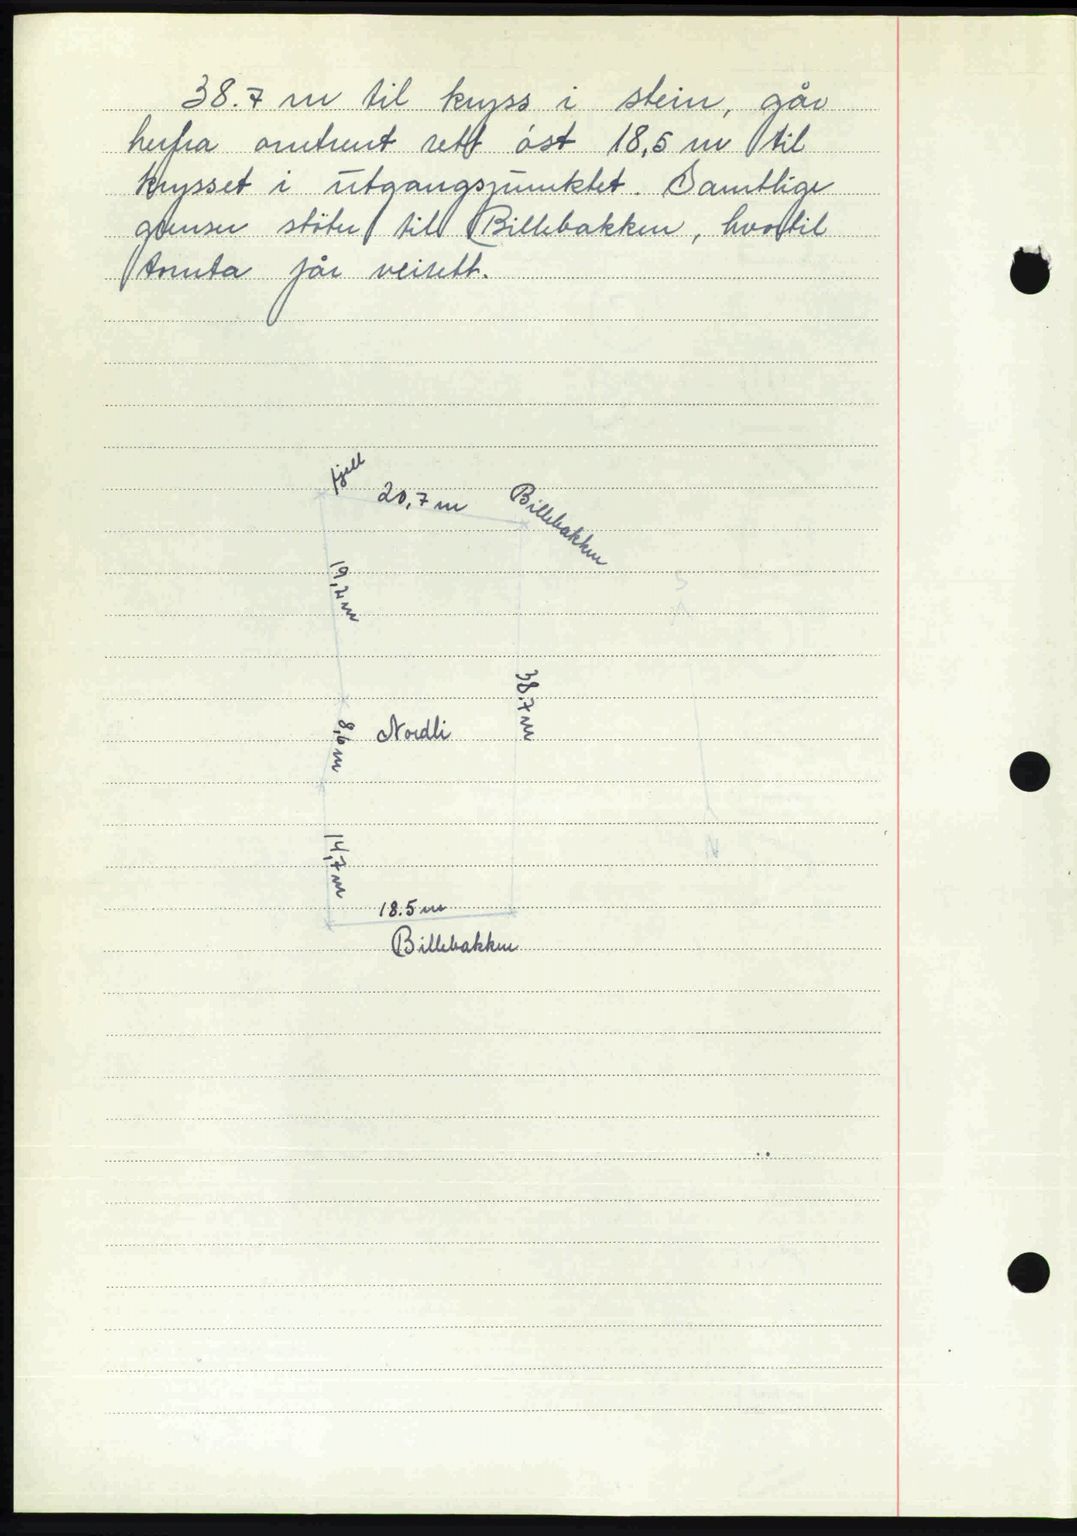 38.7 m til kryss i stein, går
herfra omtrent rett öst 18,5 m til
krysset i utgangspunktet. Samtlige
grenser stöter til Billebakken, hvortil
tomta får veirett.
fjell
20,7 m
Billebakken
19,2 m
S
38.7 m
8,6 m
Nordli
14,7 m
N
18.5 m
Billebakken